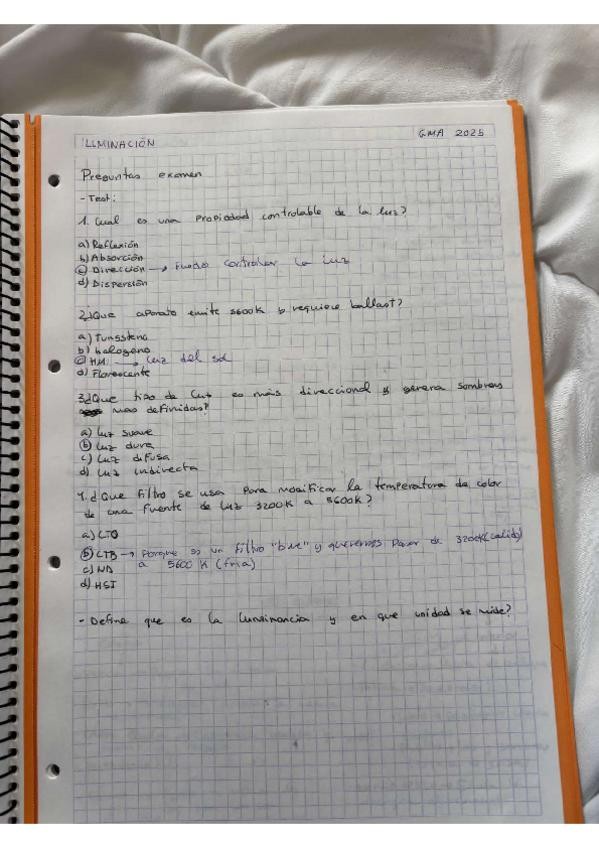 ILUMINACIÓN
GMA 2025
Preguntas examen
- Test:
1. Cual es una propiedad controlable de la luz?
a) Reflexión
b) Absorción
c) Dirección → Puedes controlar la luz
d) Dispersión
2.¿Que aparato emite 5600K y requiere ballast?
a) Tungsteno
b) halogeno
c) HMI → Luz del sol
d) Florescente
3.¿Que tipo de luz es más direccional y genera sombras
mas definidas?
a) luz suave
b) Luz dura
c) Luz difusa
d) Luz indirecta
4.¿Que filtro se usa para modificar la temperatura de color
de una fuente de luz 3200K a 5600K?
a) CTO
b) CTB → Porque es un filtro "blue" y queremos pasar de 3200K (calido)
c) ND a 5600 K (fria)
d) HSI
- Define que es la luminancia y en que unidad se mide?